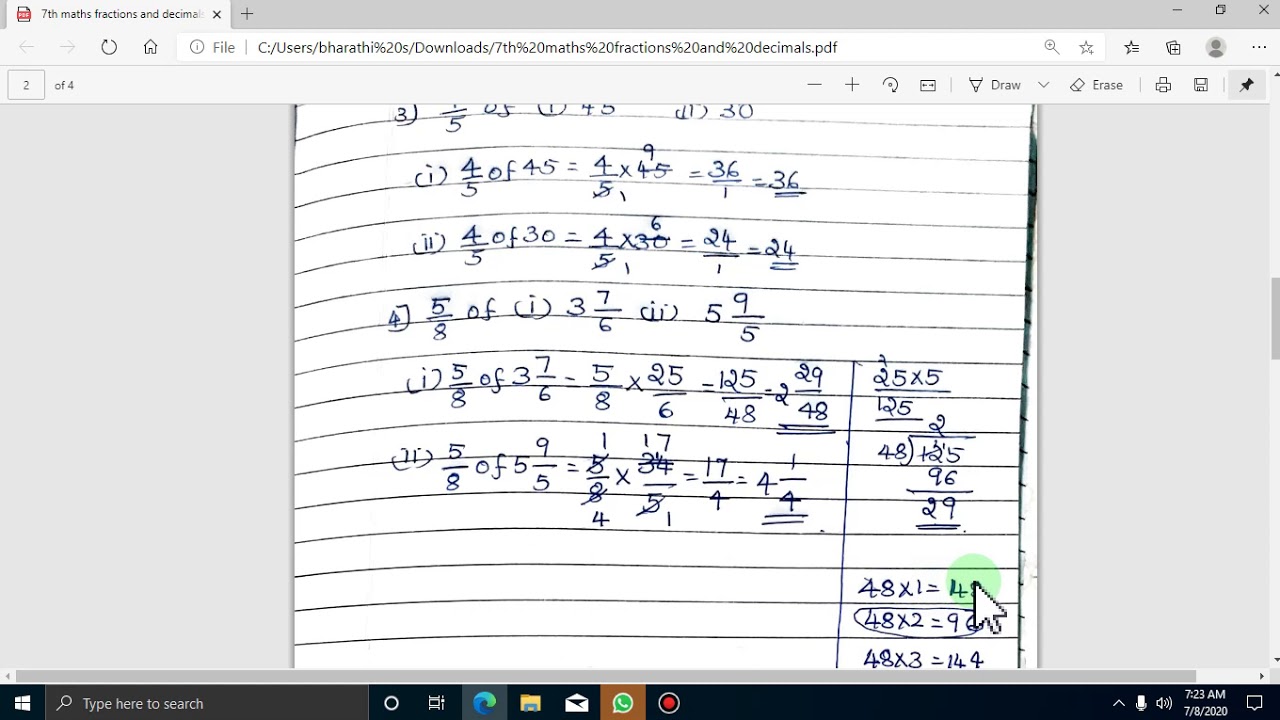 7th maths fractions and decimals
File C:/Users/bharathi%20s/Downloads/7th%20maths%20fractions%20and%20decimals.pdf
2 of 4 Draw Erase
3] 4/5 of (i) 45 (ii) 30
(i) 4/5 of 45 = 4/5 1 × 45 9 = 36/1 = 36
(ii) 4/5 of 30 = 4/5 1 × 30 6 = 24/1 = 24
4] 5/8 of (i) 3 7/6 (ii) 5 9/5
(i) 5/8 of 3 7/6 = 5/8 × 25/6 = 125/48 = 2 29/48
(ii) 5/8 of 5 9/5 = 1 5/8 4 × 17 34/5 1 = 17/4 = 4 1/4
2
25×5
125
2
48)125
96
29
48×1=48
48×2=96
48×3=144
Type here to search
7:23 AM
7/8/2020